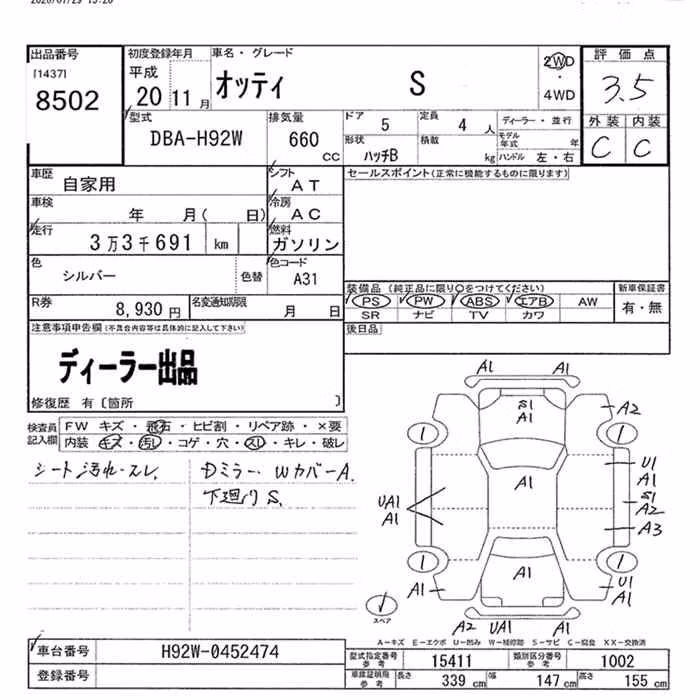 出品番号 初度登録年月 車名・グレード 評価点
[1437] 平成 2WD
8502 20 11月 オッティ S ・ 3.5
4WD
型式 排気量 ドア 5 定員 4 人 ディーラー・並行 外装 内装
DBA-H92W 660 cc 形状 ハッチB 積載 kg モデル年式 年 C C
ハンドル 左・右
車歴 自家用 シフト AT セールスポイント(正常に機能するものに限ります)
車検 年 月( 日) 冷房 AC
走行 3万3千691 km 燃料 ガソリン
色 シルバー 色替 色コード A31
装備品 (純正品に限り○をつけてください) 新車保証書
PS PW ABS エアB AW 有・無
R券 8,930円 名変通知期限 月 日 SR ナビ TV カワ
注意事項申告欄(不具合内容等は具体的に記入して下さい) 後日品
ディーラー出品
修復歴 有〔箇所 〕
検査員 FW キズ・飛石・ヒビ割・リペア跡・×要
記入欄 内装 キズ・汚レ・コゲ・穴・スレ・キレ・破レ
シート汚れ・スレ. Dミラー. WカバーA.
下廻りS.
A1 A1
S1
A1 A2
1 1
U1
A1 A1
S1
UA1 A2
A1 A3
1 1
A1 A1 U1
A1
スペア
A2 UA1 A1
A-キズ E-エクボ U-凹み W-補修跡 S-サビ C-腐食 XX-交換済
車台番号 H92W-0452474 型式指定番号参考 15411 類別区分番号参考 1002
登録番号 車庫証明用参考 長さ 339 cm 幅 147 cm 高さ 155 cm